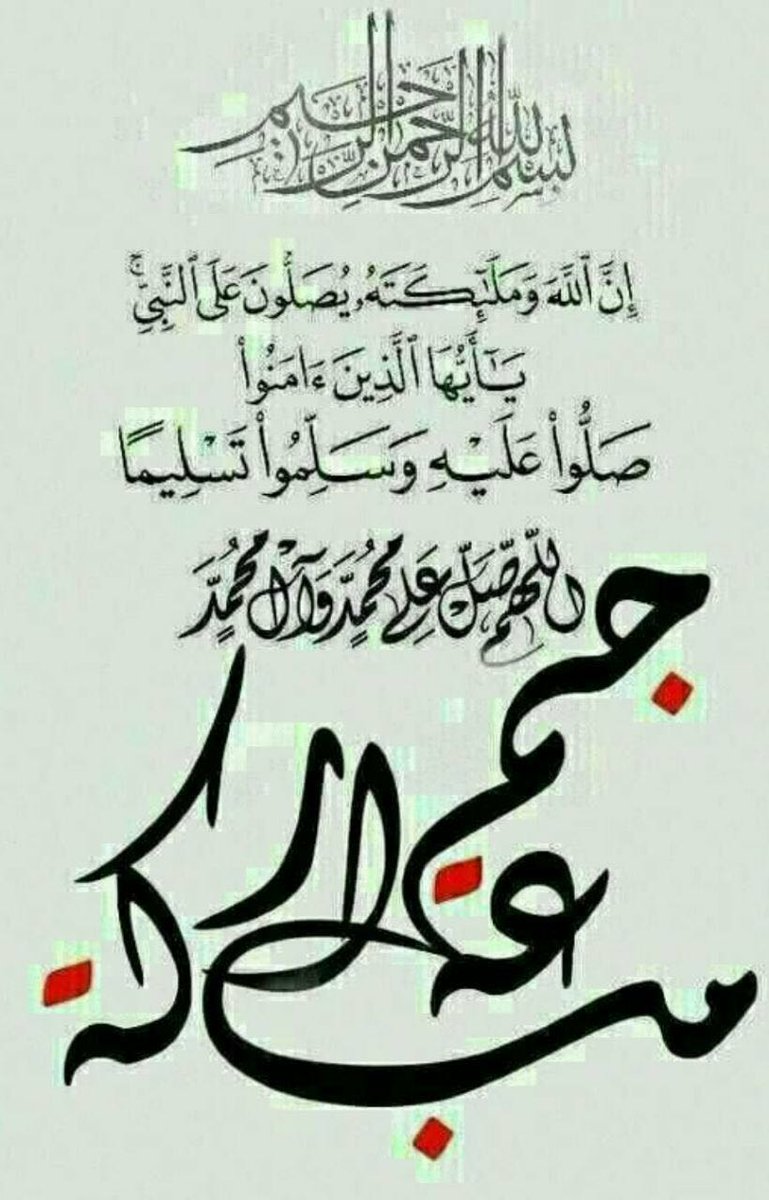 بسم الله الرحمن الرحيم
إِنَّ ٱللَّهَ وَمَلَـٰٓئِكَتَهُۥ يُصَلُّونَ عَلَى ٱلنَّبِىِّ ۚ
يَـٰٓأَيُّهَا ٱلَّذِينَ ءَامَنُوا۟
صَلُّوا۟ عَلَيْهِ وَسَلِّمُوا۟ تَسْلِيمًا
اللّهُمَّ صَلِّ عَلى مُحَمَّدٍ وَآلِ مُحَمَّدٍ
جمعة
مباركة